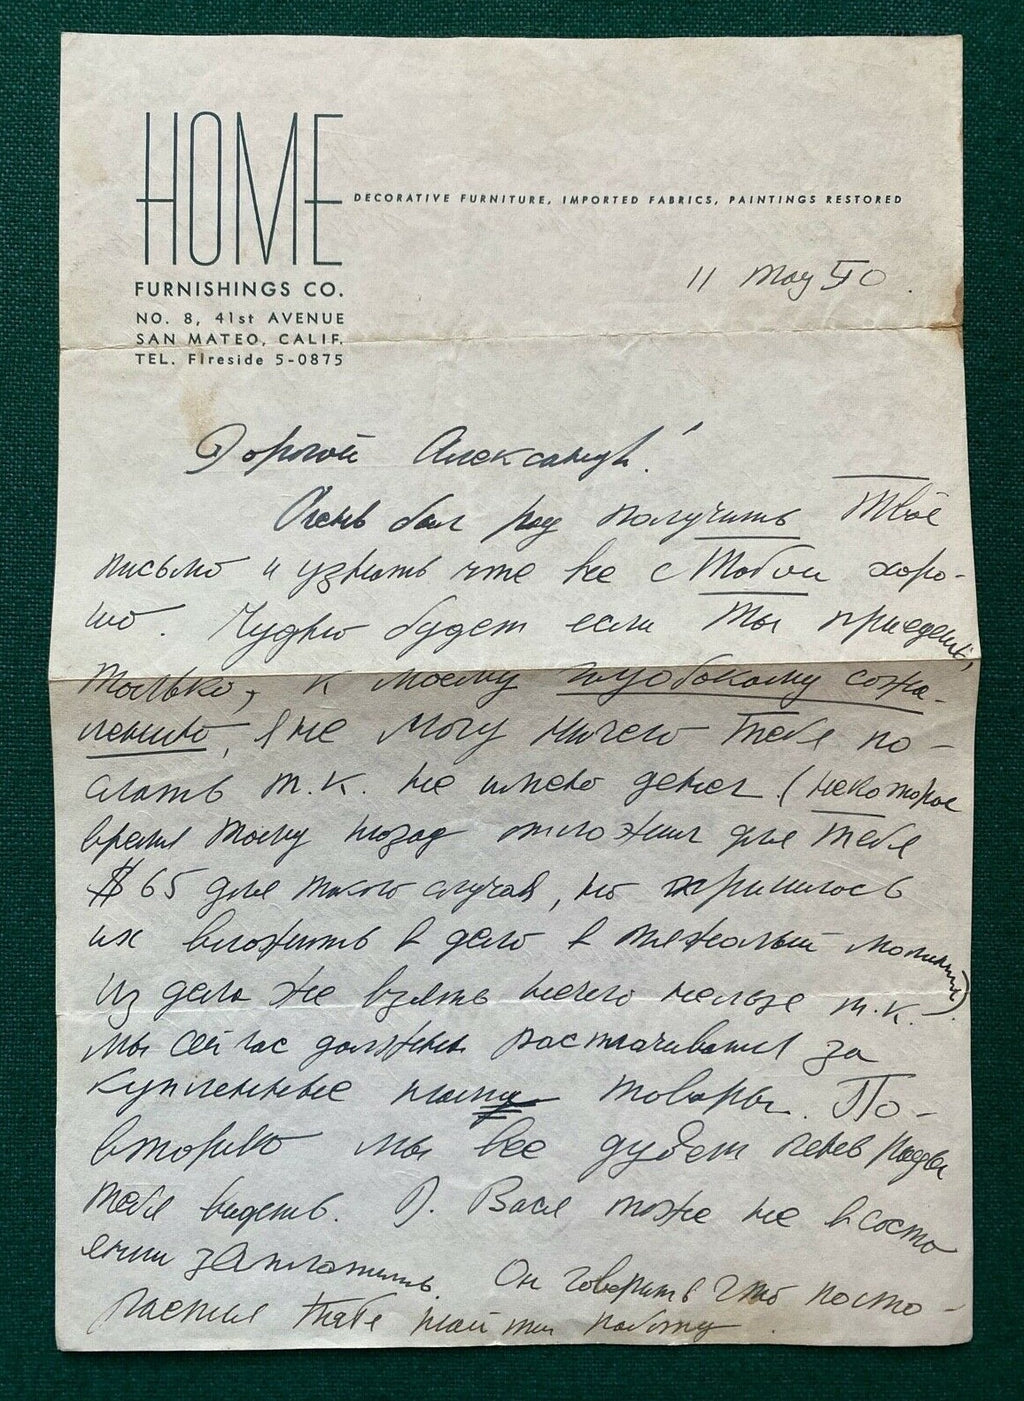 HOME
DECORATIVE FURNITURE, IMPORTED FABRICS, PAINTINGS RESTORED
FURNISHINGS CO.
NO. 8, 41st AVENUE
SAN MATEO, CALIF.
TEL. FIreside 5-0875
11 May 50.
Дорогой Александр!
Очень был рад получить Твое
письмо и узнать что все с Тобой хоро-
шо. Чудно будет если Ты приедешь,
только, к моему глубокому сожа-
лению, я не могу ничего Тебе по-
слать т.к. не имею денег. (некоторое
время тому назад отложил для Тебя
$65 для такого случая, но пришлось
их вложить в дело в тяжелый момент)
Из дела же взять нечего нельзя т.к.
мы сейчас должны расплачиваться за
купленные нами товары. По-
вторяю мы все будем очень рады
Тебя видеть. Д. Вася тоже не в состо
янии заплатить. Он говорить что поста-
раемся Тебе найти работу.